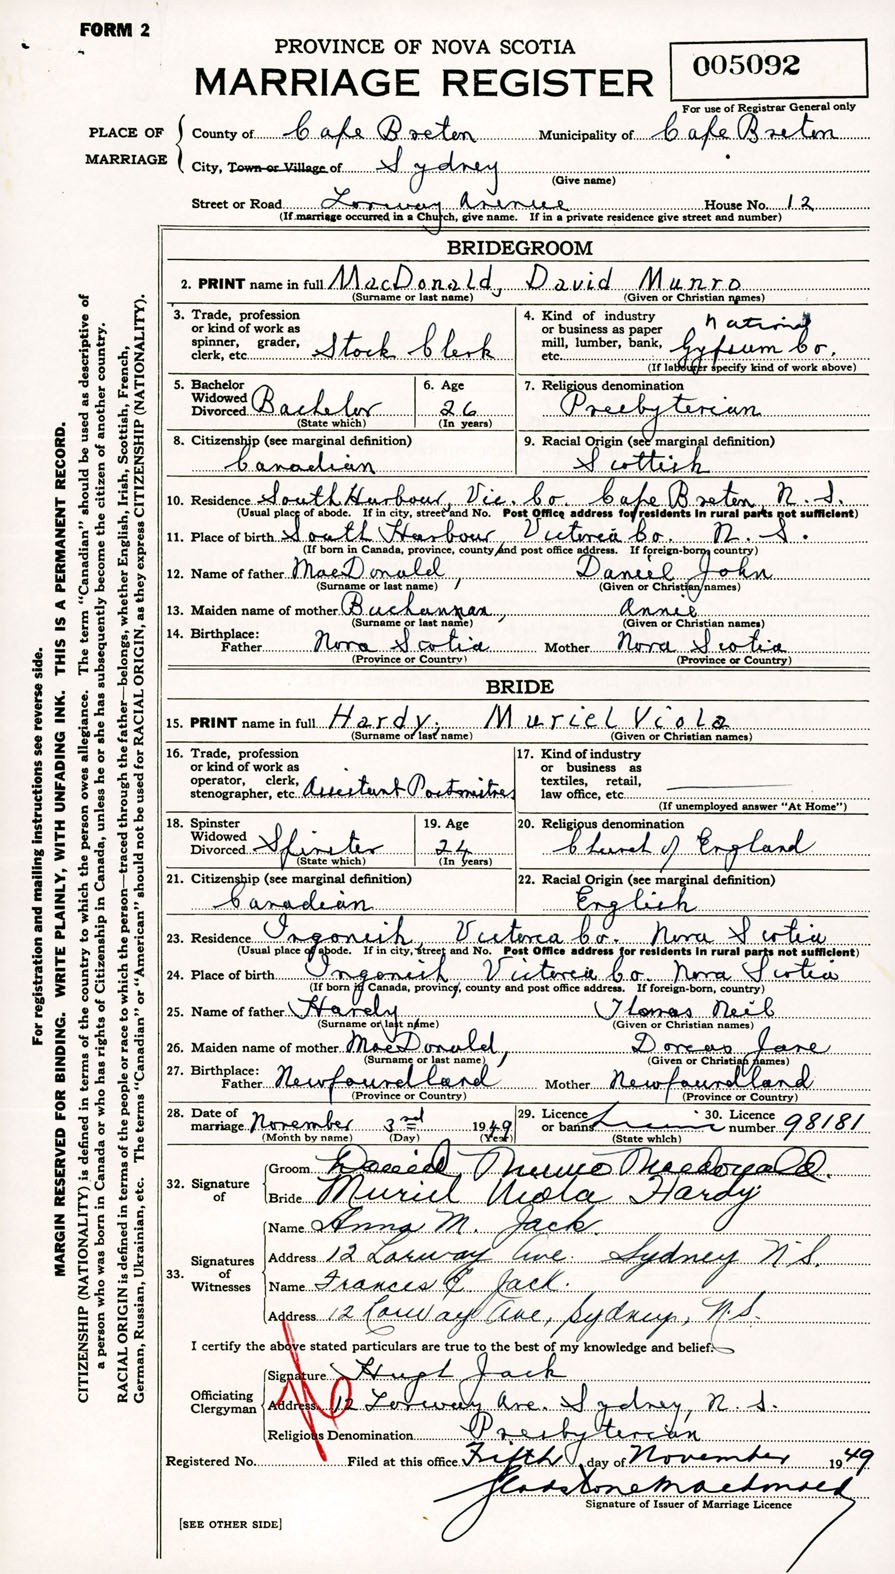 FORM 2
PROVINCE OF NOVA SCOTIA
MARRIAGE REGISTER
005092
For use of Registrar General only
PLACE OF MARRIAGE
County of Cape Breton Municipality of Cape Breton
City, Town or Village of Sydney
(Give name)
Street or Road Lorway Avenue House No. 12
(If marriage occurred in a Church, give name. If in a private residence give street and number)
BRIDEGROOM
2. PRINT name in full MacDonald, David Munro
(Surname or last name) (Given or Christian names)
3. Trade, profession or kind of work as spinner, grader, clerk, etc. Stock Clerk
4. Kind of industry or business as paper mill, lumber, bank, etc. National Gypsum Co.
(If labourer specify kind of work above)
5. Bachelor Widowed Divorced Bachelor
(State which)
6. Age 26
(In years)
7. Religious denomination Presbyterian
8. Citizenship (see marginal definition) Canadian
9. Racial Origin (see marginal definition) Scottish
10. Residence South Harbour, Vic. Co. Cape Breton N.S.
(Usual place of abode. If in city, street and No. Post Office address for residents in rural parts not sufficient)
11. Place of birth South Harbour, Victoria Co. N. S.
(If born in Canada, province, county and post office address. If foreign-born, country)
12. Name of father MacDonald, Daniel John
(Surname or last name) (Given or Christian names)
13. Maiden name of mother Buchannan, Annie
(Surname or last name) (Given or Christian names)
14. Birthplace: Father Nova Scotia Mother Nova Scotia
(Province or Country) (Province or Country)
BRIDE
15. PRINT name in full Hardy, Muriel Viola
(Surname or last name) (Given or Christian names)
16. Trade, profession or kind of work as operator, clerk, stenographer, etc. Assistant Postmitres
17. Kind of industry or business as textiles, retail, law office, etc.
(If unemployed answer "At Home")
18. Spinster Widowed Divorced Spinster
(State which)
19. Age 24
(In years)
20. Religious denomination Church of England
21. Citizenship (see marginal definition) Canadian
22. Racial Origin (see marginal definition) English
23. Residence Ingonish, Victoria Co. Nova Scotia
(Usual place of abode. If in city, street and No. Post Office address for residents in rural parts not sufficient)
24. Place of birth Ingonish Victoria Co. Nova Scotia
(If born in Canada, province, county and post office address. If foreign-born, country)
25. Name of father Hardy Thomas Neil
(Surname or last name) (Given or Christian names)
26. Maiden name of mother MacDonald, Dorcas Jane
(Surname or last name) (Given or Christian names)
27. Birthplace: Father Newfoundland Mother Newfoundland
(Province or Country) (Province or Country)
28. Date of marriage November 3rd 1949
(Month by name) (Day) (Year)
29. Licence or banns
(State which)
30. Licence number 98181
32. Signature of
Groom David Munro Macdonald.
Bride Muriel Viola Hardy
33. Signatures of Witnesses
Name Anna M. Jack.
Address 12 Lorway Ave. Sydney N.S.
Name Frances E. Jack.
Address 12 Lorway Ave, Sydney, N.S.
I certify the above stated particulars are true to the best of my knowledge and belief.
Officiating Clergyman
Signature Hugh Jack
Address 12 Lorway Ave. Sydney, N. S.
Religious Denomination Presbyterian
Registered No. Filed at this office Fifth day of November 1949
Gladstone Macdonald
Signature of Issuer of Marriage Licence
[SEE OTHER SIDE]
For registration and mailing instructions see reverse side.
MARGIN RESERVED FOR BINDING. WRITE PLAINLY, WITH UNFADING INK. THIS IS A PERMANENT RECORD.
CITIZENSHIP (NATIONALITY) is defined in terms of the country to which the person owes allegiance. The term "Canadian" should be used as descriptive of
a person who was born in Canada or who has rights of Citizenship in Canada, unless he or she has subsequently become the citizen of another country.
RACIAL ORIGIN is defined in terms of the people or race to which the person—traced through the father—belongs, whether English, Irish, Scottish, French,
German, Russian, Ukrainian, etc. The terms "Canadian" or "American" should not be used for RACIAL ORIGIN, as they express CITIZENSHIP (NATIONALITY).